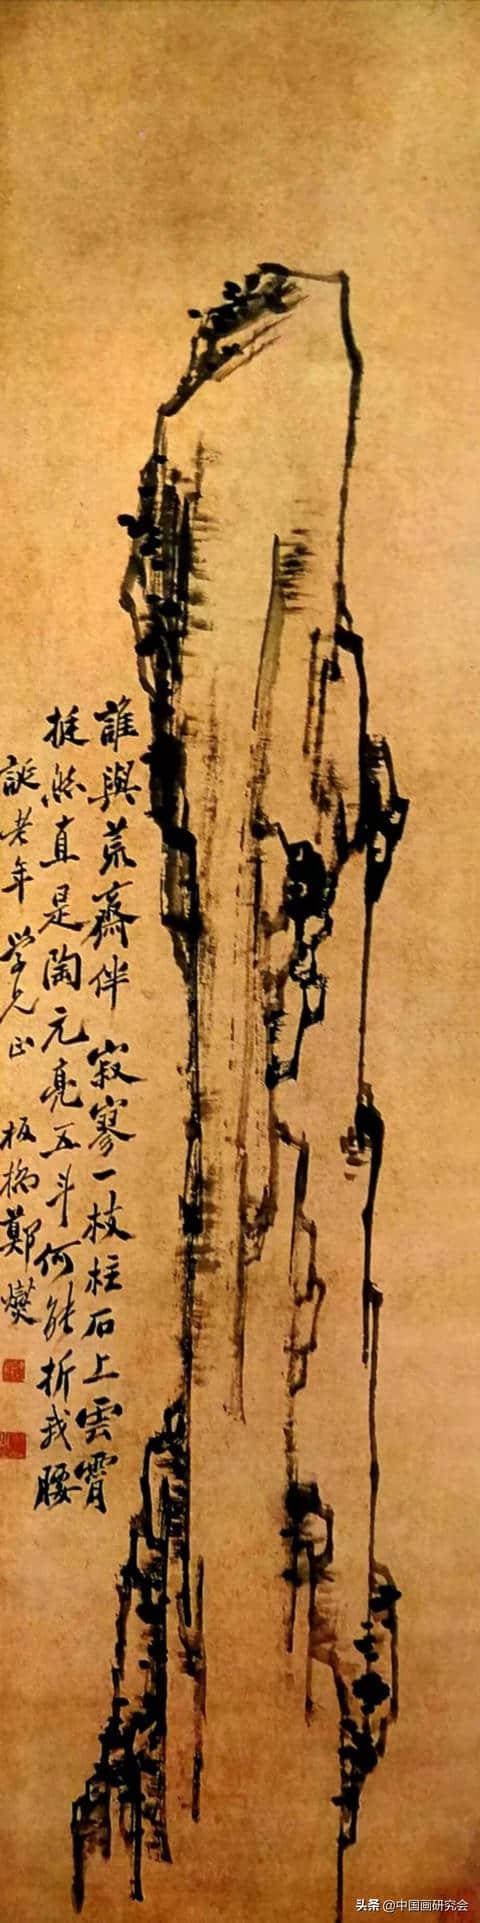 誰與荒齋伴寂寥一枝柱石上雲霄
挺然直是陶元亮五斗何能折我腰
誕老年學兄正板橋鄭燮
头条 @中国画研究会